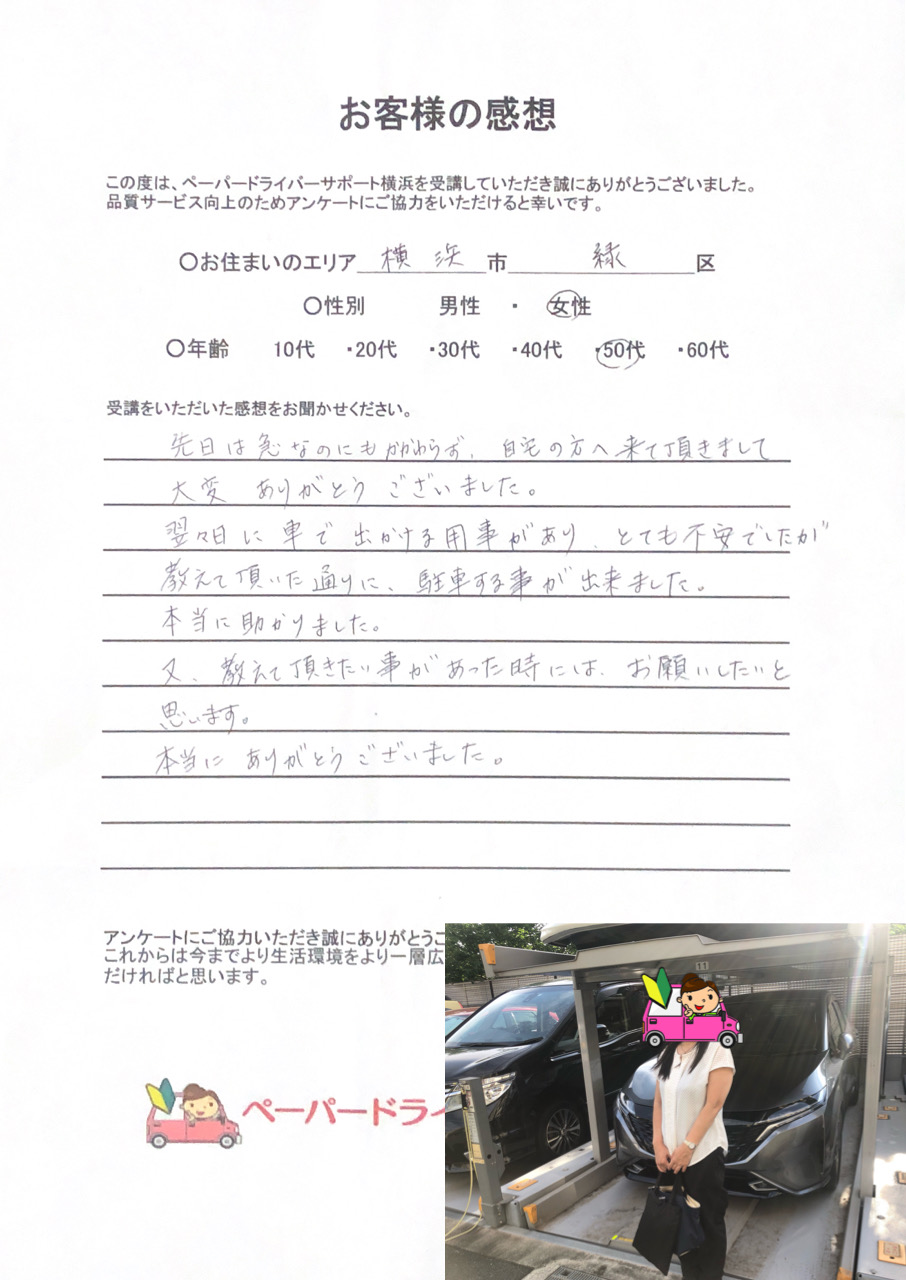 お客様の感想
この度は、ペーパードライバーサポート横浜を受講していただき誠にありがとうございました。
品質サービス向上のためアンケートにご協力をいただけると幸いです。
〇お住まいのエリア 横浜 市 緑 区
〇性別 男性 ・ 女性
〇年齢 10代 ・20代 ・30代 ・40代 ・50代 ・60代
受講をいただいた感想をお聞かせください。
先日は急なのにもかかわらず、自宅の方へ来て頂きまして
大変 ありがとう ございました。
翌々日に 車で 出かける用事があり、とても不安でしたが
教えて頂いた通りに、駐車する事が出来ました。
本当に助かりました。
又、教えて頂きたい事があった時には、お願いしたいと
思います。
本当に ありがとうございました。
アンケートにご協力いただき誠にありがとうご
これからは今までより生活環境をより一層広
だければと思います。
ペーパードライ
11